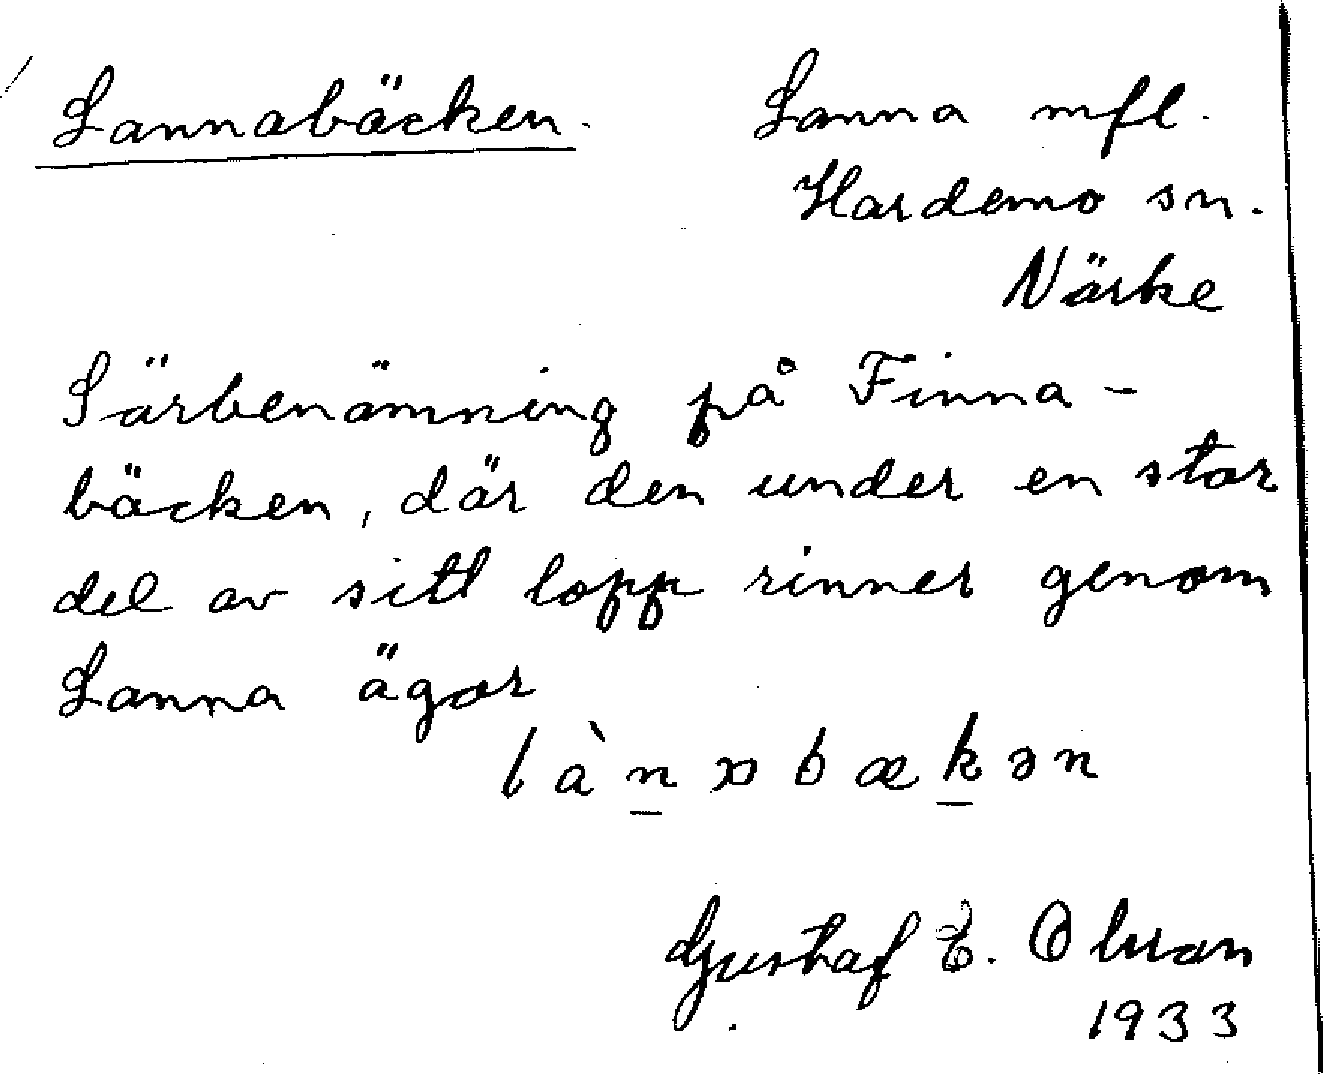 Lannabäcken. Lanna mfl.
Hardemo sn.
Närke
Särbenämning på Finna-
bäcken, där den under en stor
del av sitt lopp rinner genom
Lanna ägor
lànɒbækən
Gustaf E. Olsson
1933